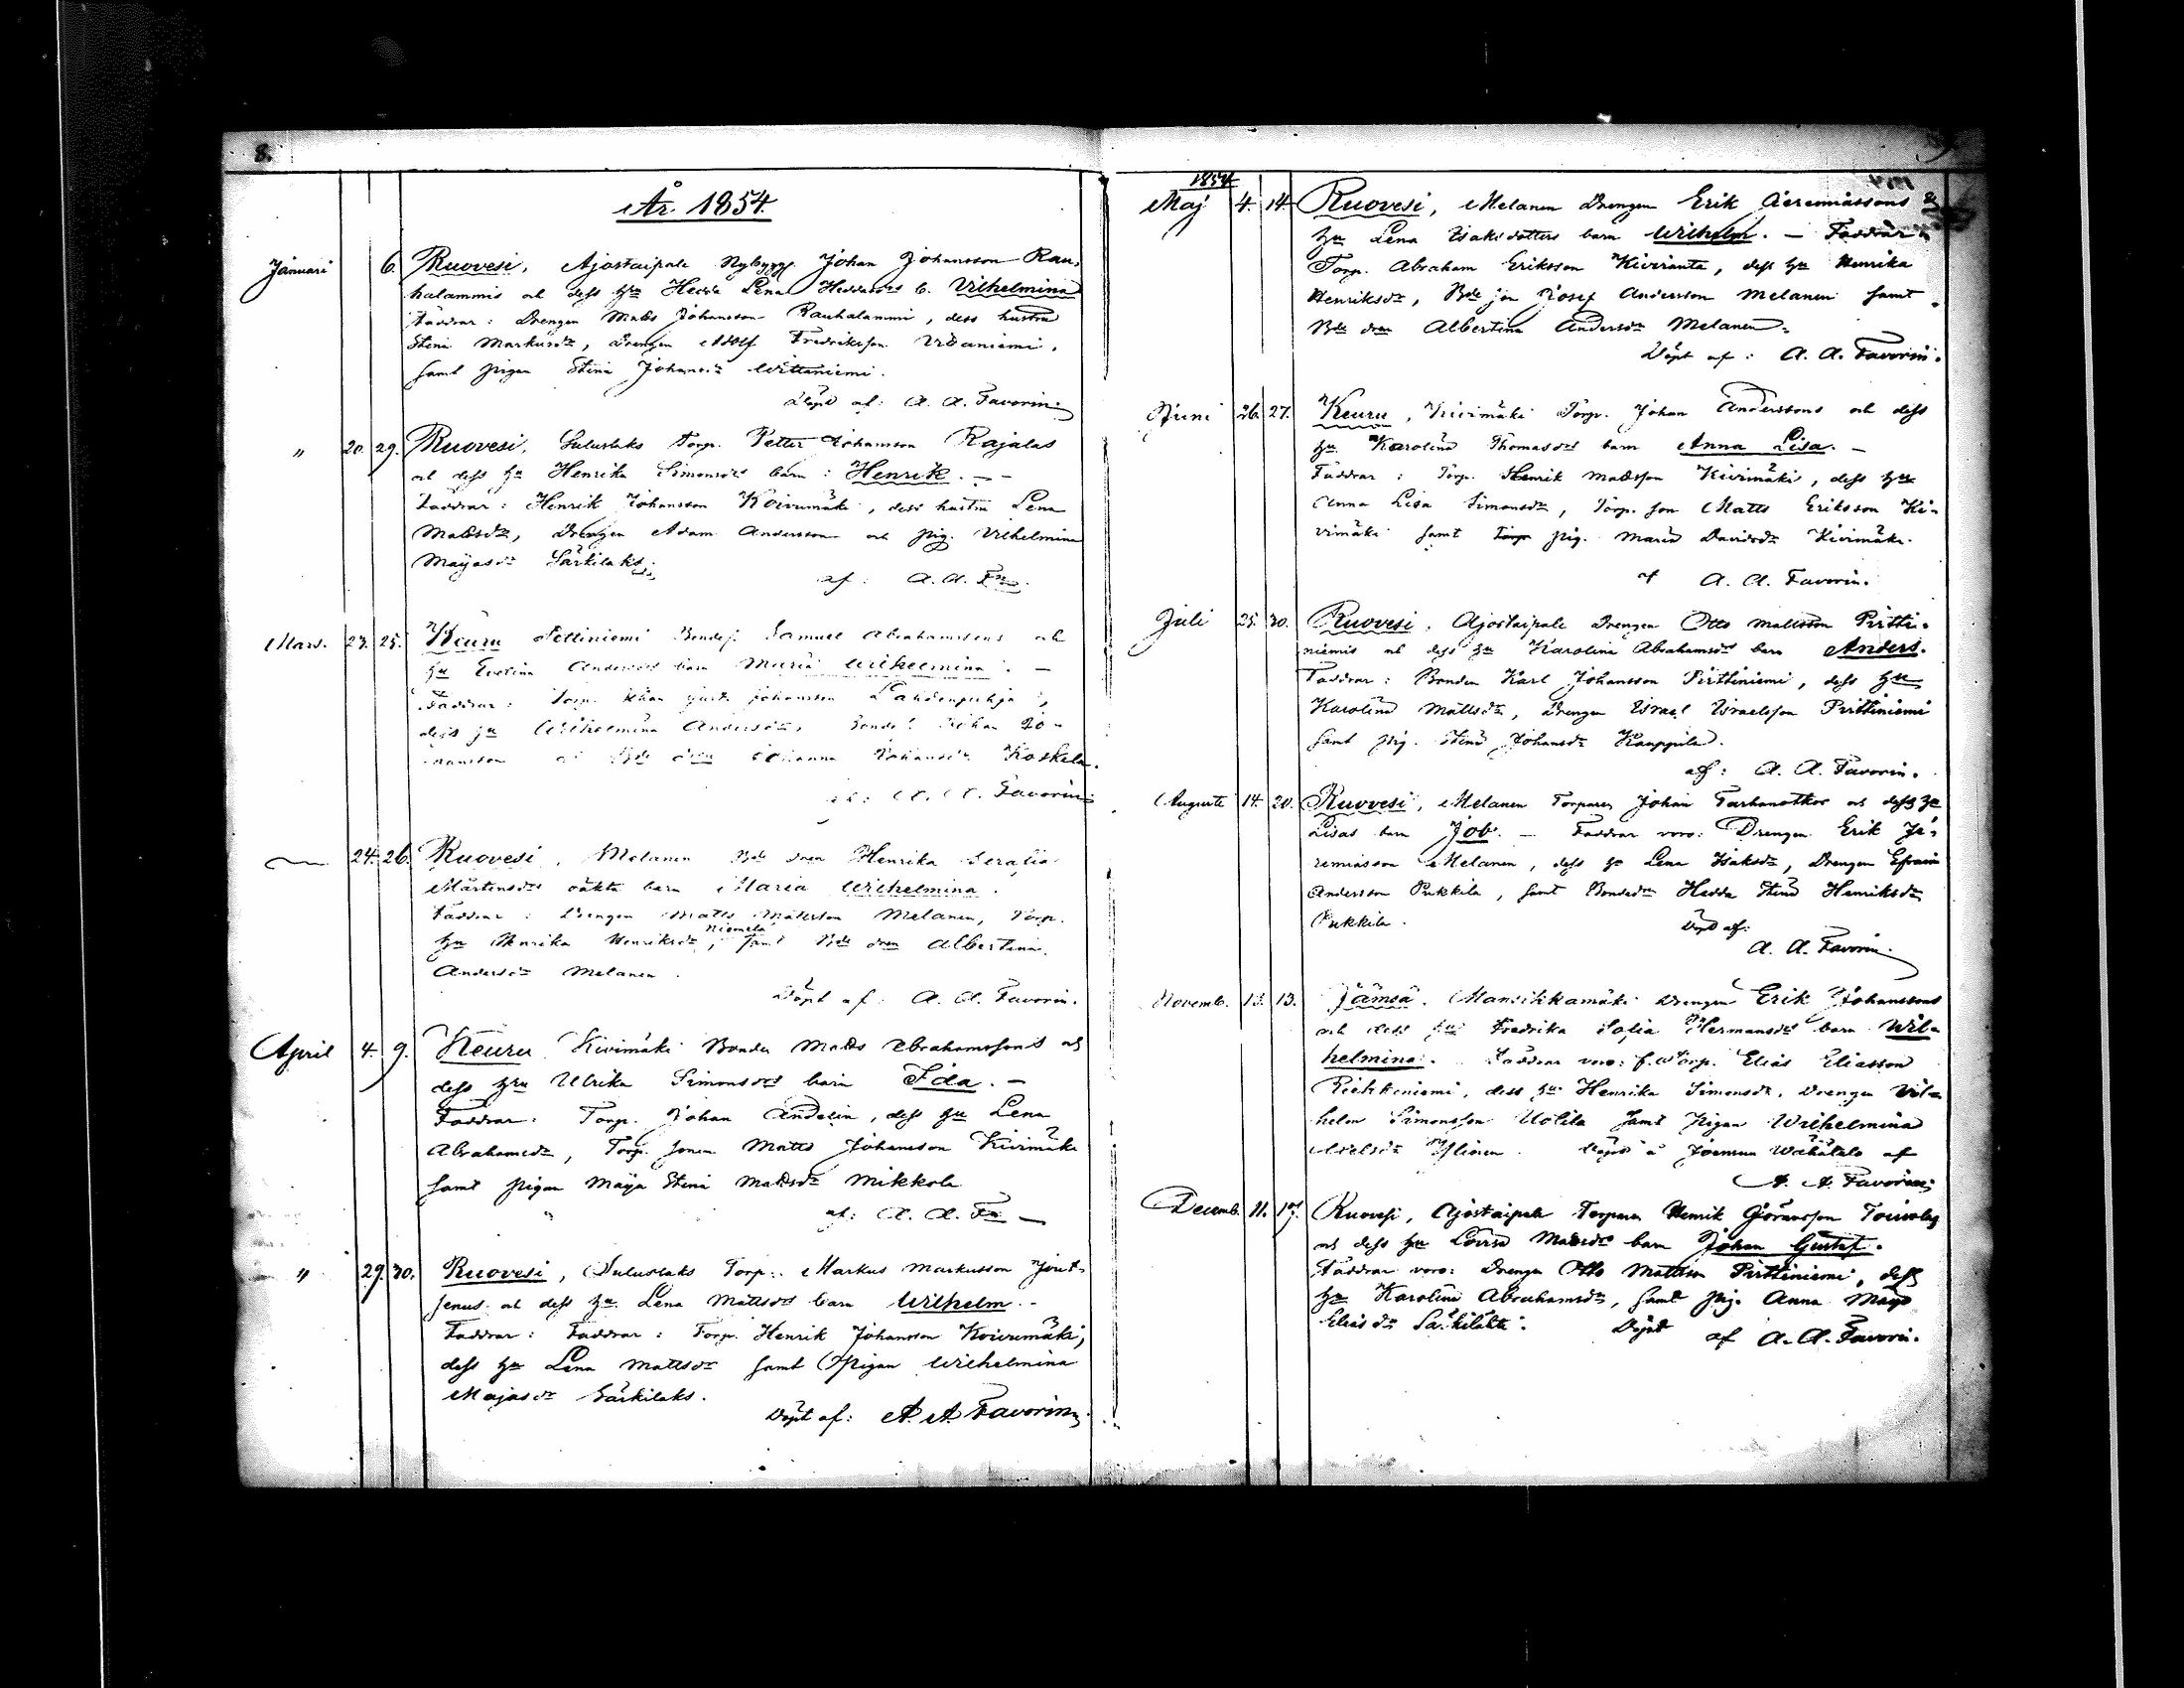 8.
År 1854.
Januari 6. Ruovesi, Ajostaipale Nybygg. Johan Johansson Rau-
halammis och dess hu Hedda Lena b. Vilhelmina
Faddrar: Drengen Matts Johansson Rauhalammi, dess hustru
Stina Markusdr, Drengen Adolf Fredriksson
samt pigan Stina Johansdr Wittaniemi.
Döpt af: A. A. Favorin
" 20. 29. Ruovesi, Suluslaks Torp. Petter Johansson Rajalas
och dess hu Henrika Simonsdrs barn: Henrik. —
Faddrar: Henrik Johansson Koivumäki, dess hustru Lena
Mattsdr, Drengen Adam Andersson och pig. Vilhelmina
Majasdr Särkilaks
af: A. A. Fn.
Mars. 23. 25. Keuru Bondes. Samuel Abrahamssons och
hu Andersdrs barn Maria Wilhelmina. —
Faddrar: Torp. Johan Gust. Johansson
dess hu Wilhelmina Andersdr, Bondes. Johan Jo-
hansson och Bde drn Johanna Johansdr Koskela.
af: A. A. Favorin
24. 26. Ruovesi, Melanen Bde dren Henrika Serafia
Mårtensdrs oäkta barn Maria Wilhelmina.
Faddrar: Drengen Matts Mattsson Melanen, Torp.
hu Henriksdr Niemelä, samt Bde dren Albertina
Andersdr Melanen.
Döpt af: A. A. Favorin.
April 4. 9. Keuru Kivimäki Bonden Matts Abrahamssons och
dess hru Ulrika Simonsdrs barn Ida. —
Faddrar: Torp. Johan Andelin, dess hu Lena
Abrahamsdr, Torp. sonen Matts Johansson Kivimäki
samt pigan Maja Stina Mattsdr Mikkola
af: A. A. Fn —
" 29. 30. Ruovesi, Suluslaks Torp. Markus Markusson Jout-
senus och dess hu Lena Mattsdrs barn Wilhelm. -
Faddrar: Faddrar: Torp. Henrik Johansson Koivumäki,
dess hu Lena Mattsdr samt Pigan Wilhelmina
Majasdr Särkilaks.
Döpt af: A. A. Favorin
1854
Maj 4. 14. Ruovesi, Melanen Drengen Erik Jeremiassons &
hu Lena Isaksdotters barn Wilhelm. — Faddrar:
Torp. Abraham Eriksson Kiviranta, dess hu Henrika
Henriksdr, Bde son Josef Andersson Melanen samt
Bde dren Albertina Andersdr Melanen.
Döpt af: A. A. Favorin.
Juni 26. 27. Keuru, Kivimäki Torp. Johan Anderssons och dess
hu Karolina Thomasdrs barn Anna Lisa. —
Faddrar: Torp. Henrik Mattsson Kivimäki, dess hu
Anna Lisa Simonsdr, Torp. son Matts Eriksson Ki-
vimäki samt Torp pig. Maria Davidsdr Kivimäki.
af A. A. Favorin.
Juli 25. 30. Ruovesi, Ajostaipale Drengen Otto Mattsson Pirtti-
niemis och dess hu Karolina Abrahamsdrs barn Anders.
Faddrar: Bonden Karl Johansson Pirttiniemi, dess hu
Karolina Mattsdr, Drengen Israel Israelsson Pirttiniemi
samt pig. Stina Johansdr Kauppila.
af: A. A. Favorin.
Augusti 14. 20. Ruovesi, Melanen Torparen Johan Tarhanotkos och dess hu
Lisas barn Job. — Faddrar voro: Drengen Erik Je-
remiasson Melanen, dess hu Lena Isaksdr, Drengen Efraim
Andersson Pukkila, samt Bondedr Hedda Stina Henriksdr
Pukkila. Döpt af:
A. A. Favorin.
Novemb. 13. 13. Jämsä, Mansikkamäki Drengen Erik Johanssons
och dess hu Fredrika Sofia Hermansdrs barn Wil-
helmina. Faddrar voro: f.d Torp. Elias Eliasson
dess hu Henrika Simonsdr, Drengen Vil-
helm Simonsson Uotila samt Pigan Wilhelmina
Döpt å Wähätalo af
A. A. Favorin
Decemb. 11. 17. Ruovesi, Ajostaipale Torparen Henrik Göransson Toivolas
och dess hu Lovisa Mattsdrs barn Johan Gustaf.
Faddrar voro: Drengen Otto Mattsson Pirttiniemi, dess
hu Karolina Abrahamsdr, samt pig. Anna Maja
Eliasdr Särkilahti. Döpt af A. A. Favorin.